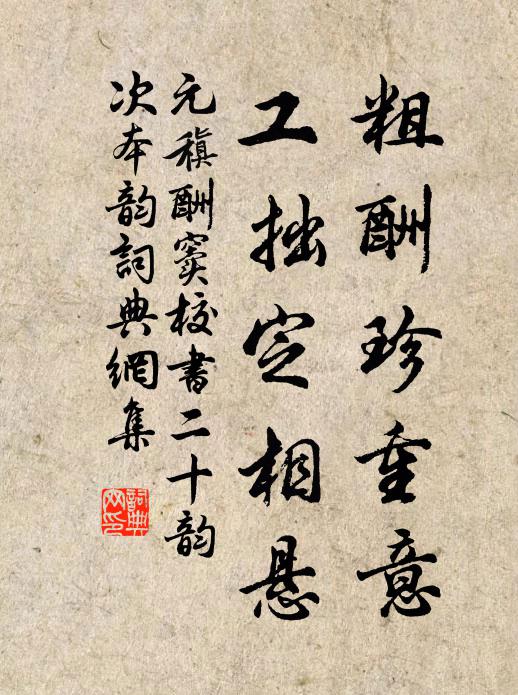 粗酬珍重意
工拙定相悬
元稹酬窦校书二十韵
次本韵詞典網集
詞典网印